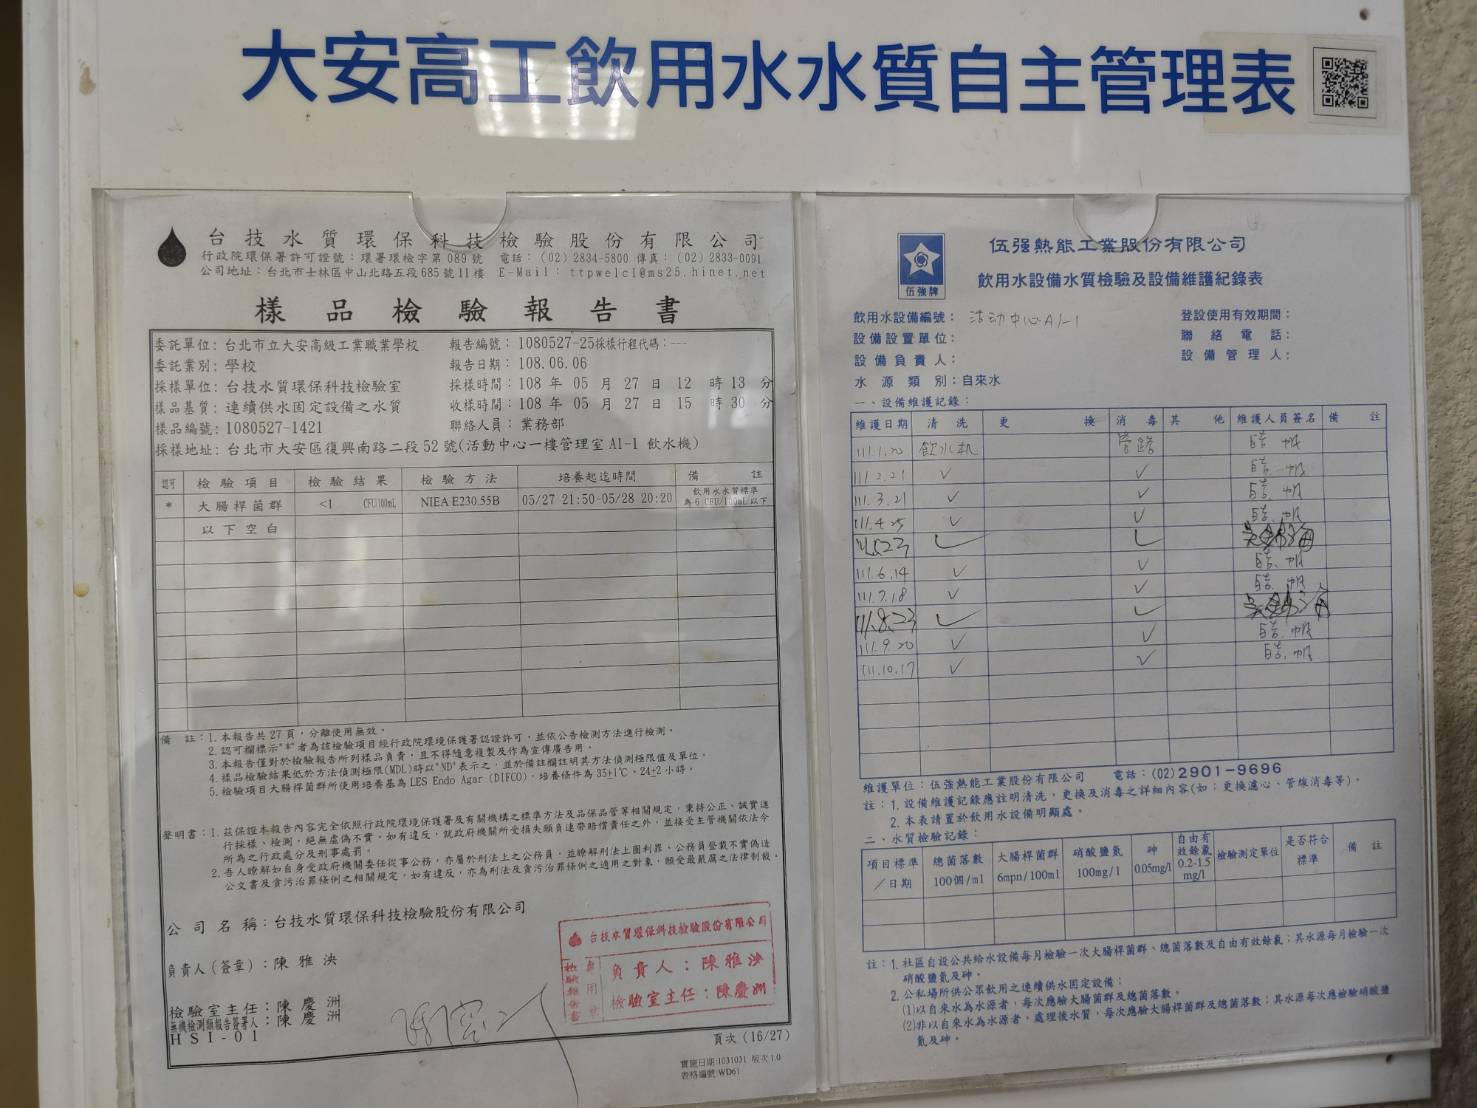 大安高工飲用水水質自主管理表
台技水質環保科技檢驗股份有限公司
行政院環保署許可證號：環署環檢字第089號 電話：(02)2834-5800 傳真：(02)2833-0091
公司地址：台北市士林區中山北路五段685號11樓 E-Mail：ttpwelcl@ms25.hinet.net
樣品檢驗報告書
委託單位：台北市立大安高級工業職業學校 報告編號：1080527-25採樣行程代碼：---
委託業別：學校 報告日期：108.06.06
採樣單位：台技水質環保科技檢驗室 採樣時間：108 年 05 月 27 日 12 時 13 分
樣品基質：連續供水固定設備之水質 收樣時間：108 年 05 月 27 日 15 時 30 分
樣品編號：1080527-1421 聯絡人員：業務部
採樣地址：台北市大安區復興南路二段52號(活動中心一樓管理室A1-1 飲水機)
認可 檢驗項目 檢驗結果 檢驗方法 培養起迄時間 備註
* 大腸桿菌群 <1 CFU/100mL NIEA E230.55B 05/27 21:50-05/28 20:20 飲用水水質標準為6 CFU/100mL以下
以下空白
備 註：1.本報告共27頁，分離使用無效。
2.認可欄標示"*"者為該檢驗項目經行政院環境保護署認證許可，並依公告檢測方法進行檢測。
3.本報告僅對於檢驗報告所列樣品負責，且不得隨意複製及作為宣傳廣告用。
4.樣品檢驗結果低於方法偵測極限(MDL)時以"ND"表示之，並於備註欄註明其方法偵測極限值及單位。
5.檢驗項目大腸桿菌群所使用培養基為LES Endo Agar (DIFCO)，培養條件為35±1℃，24±2小時。
聲明書：1.茲保證本報告內容完全依照行政院環境保護署及有關機構之標準方法及品保品管等相關規定，秉持公正、誠實進
行採樣、檢測，絕無虛偽不實。如有違反，就政府機關所受損失願負連帶賠償責任之外，並接受主管機關依法令
所為之行政處分及刑事處罰。
2.吾人瞭解如自身受政府機關委任從事公務，亦屬於刑法上之公務員，並瞭解刑法上圖利罪、公務員登載不實偽造
公文書及貪污治罪條例之相關規定，如有違反，亦為刑法及貪污治罪條例之適用之對象，願受最嚴厲之法律制裁。
公司名稱：台技水質環保科技檢驗股份有限公司
負責人(簽章)：陳雅泱
檢驗室主任：陳慶洲
無機檢測類報告簽署人：陳慶洲
HSI-01
台技水質環保科技檢驗股份有限公司
檢驗報告書
專用章
負責人：陳雅泱
檢驗室主任：陳慶洲
頁次(16/27)
實施日期:1031031 版次1.0
表格編號:WD61
伍強牌
伍强熱能工業股份有限公司
飲用水設備水質檢驗及設備維護紀錄表
飲用水設備編號：活动中心A1-1 登設使用有效期間：
設備設置單位： 聯絡電話：
設備負責人： 設備管理人：
水源類別：自來水
一、設備維護記錄：
維護日期 清洗 更換 消毒 其他 維護人員簽名 備註
111.1.20 飲水机 管路
111.2.21 ✓ ✓
111.3.21 ✓ ✓
111.4.25 ✓ ✓
111.5.23 ✓ ✓
111.6.14 ✓ ✓
111.7.18 ✓ ✓
111.8.23 ✓ ✓
111.9.20 ✓ ✓
111.10.17 ✓ ✓
維護單位：伍強熱能工業股份有限公司 電話：(02)2901-9696
註：1.設備維護記錄應註明清洗，更換及消毒之詳細內容(如：更換濾心、管線消毒等)。
2.本表請置於飲用水設備明顯處。
二、水質檢驗記錄：
項目標準／日期 總菌落數 100個/ml 大腸桿菌群 6mpn/100ml 硝酸鹽氮 100mg/l 砷 0.05mg/l 自由有效餘氯 0.2-1.5 mg/l 檢驗測定單位 是否符合標準 備註
註：1.社區自設公共給水設備每月檢驗一次大腸桿菌群、總菌落數及自由有效餘氯；其水源每月檢驗一次
硝酸鹽氮及砷。
2.公私場所供公眾飲用之連續供水固定設備：
(1)以自來水為水源者，每次應驗大腸菌群及總菌落數。
(2)非以自來水為水源者，處理後水質，每次應驗大腸桿菌群及總菌落數；其水源每次應檢驗硝酸鹽
氮及砷。